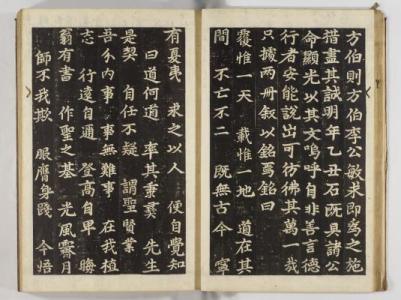 方伯則方伯李公敏求即為之施
措盡其誠明年乙丑石既具諸公
命顯光以其文嗚呼自非善言德
行者安能說出可彷彿其萬一哉
只據兩冊叙以銘焉銘曰
覆惟一天 載惟一地 道在其
間 不亡不二 既無古今 寧
有夏夷 求之以人 便自覺知
曰道何道 率其秉彛 先生
是契 自任不疑 謂聖賢業
吾分內事 事無難事 在我植
志 行遠自邇 登高自卑 晦
翁有書 作聖之基 光風霽月
師不我欺 服膺身踐 今悟